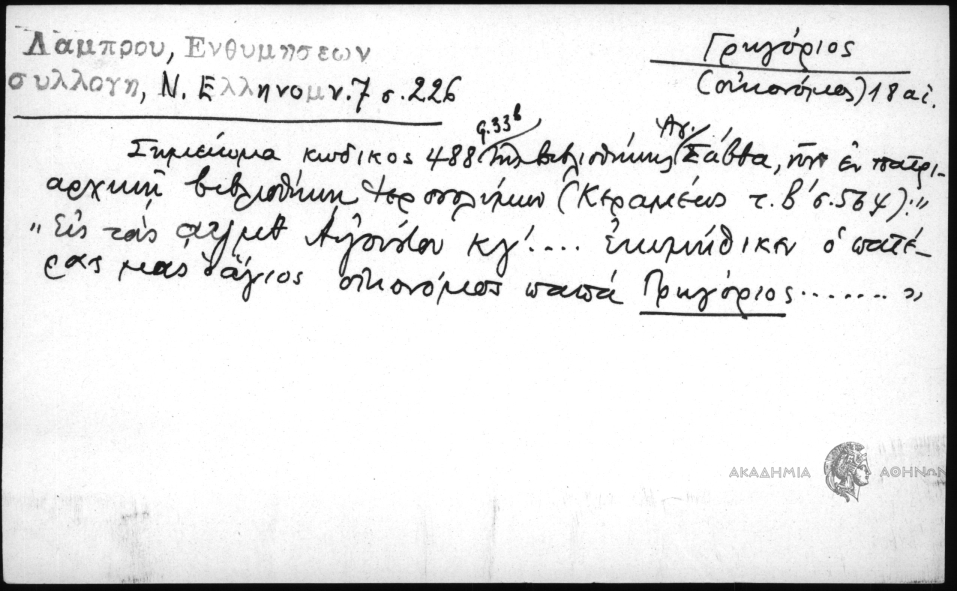 Λαμπρου, Ενθυμησεων
συλλογη, Ν. Ελληνομν. 7 σ. 226
Γρηγόριος
(οἰκονόμος) 18 αἰ.
φ. 33β Ἁγ.
Σημείωμα κώδικος 488 τῆς βιβλιοθήκης Σάββα, νῦν ἐν πατρι-
αρχικῇ βιβλιοθήκῃ Ἱεροσολύμων (Κεραμέως τ. Β΄ σ. 564):"
"Εἰς τὰς αψμθ Αὐγούστου κγ΄.... ἐκοιμήθικεν ὁ πατέ-
ρας μας ὁ ἅγιος οἰκονόμος παπᾶ Γρηγόριος ........"
ΑΚΑΔΗΜΙΑ ΑΘΗΝΩΝ